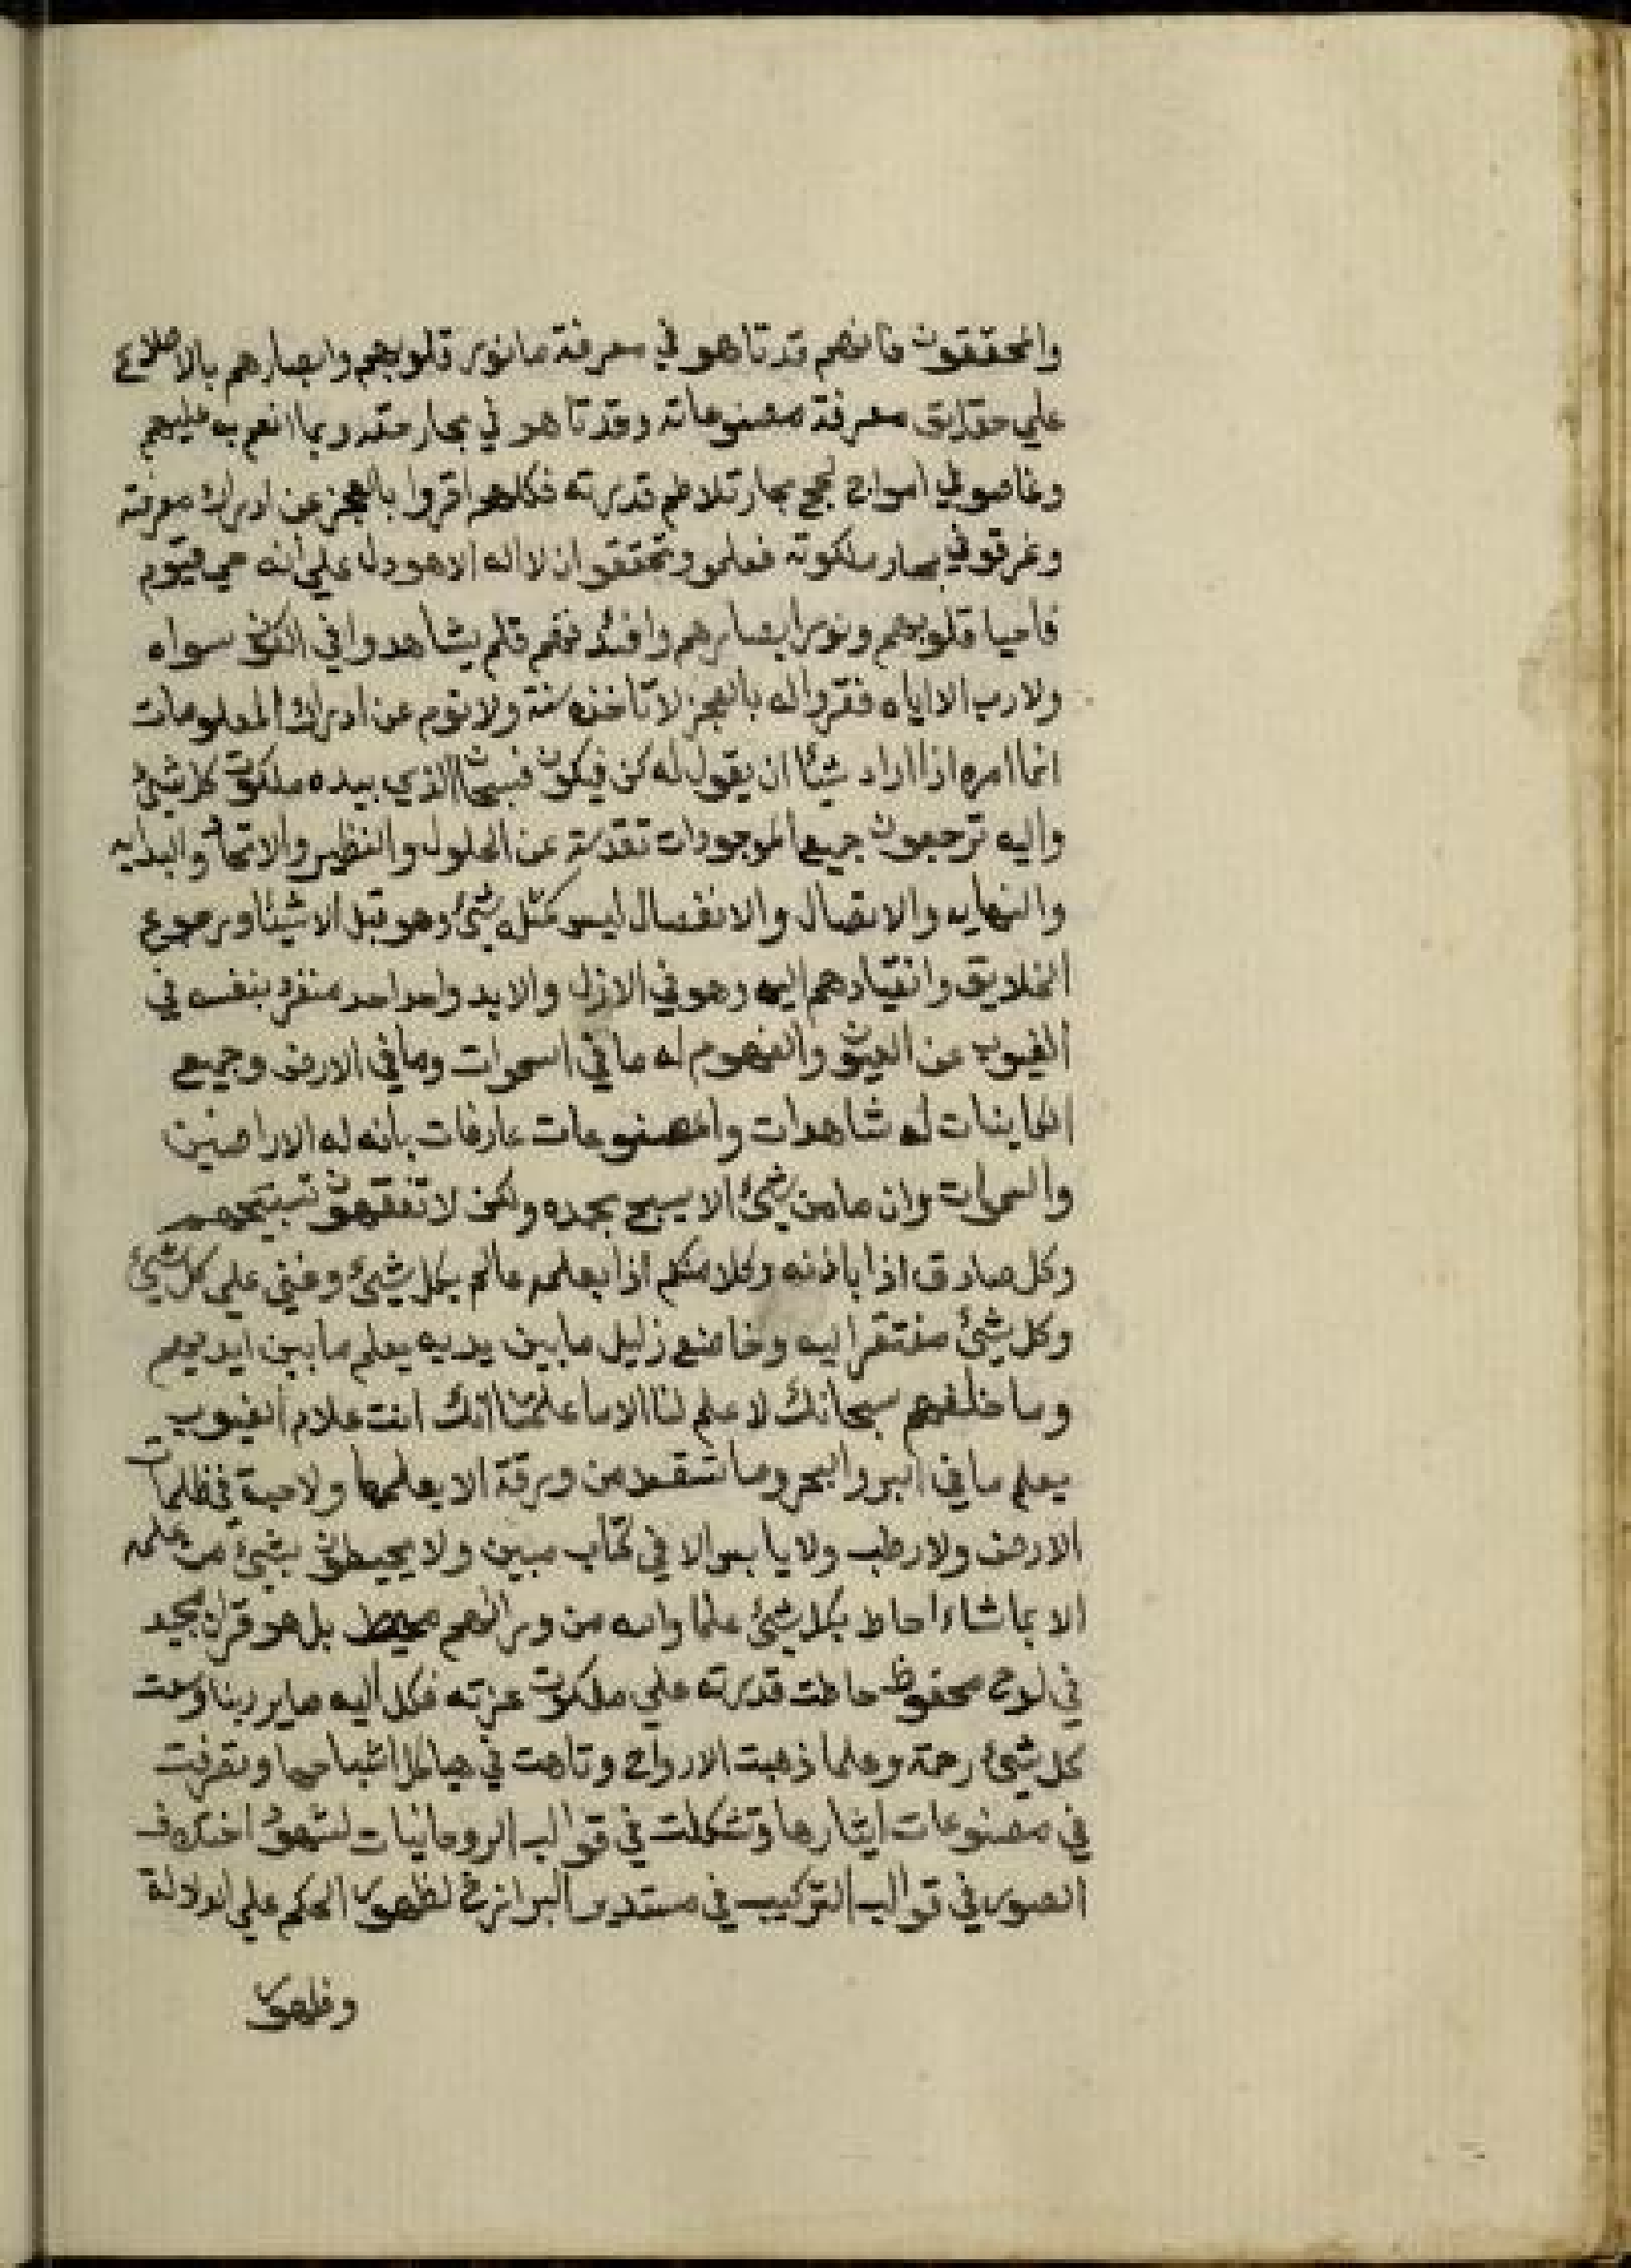 والمحققون فانهم قد تاهو في معرفة ما نور قلوبهم وابصارهم بالاطلاع
علي حقايق معرفة مصنوعاته وقد تاهو في بحار مقدو بما انعم به عليهم
وغاصو في امواج لجج بحار تلاطم قدرته فكلهم اقروا بالعجز عن ادراك معرفته
وغرقو في بحار ملكوته فعلمو وتحققو ان لا اله الا هو دله علي انه حي قيوم
فاحيا قلوبهم ونور ابصارهم وافئدتهم فلم يشاهدوا في الكون سواه
ولا رب الا اياه فقروا له بالعجز لا تاخذه سنة ولا نوم عن ادراك المعلومات
انما امره اذا اراد شيئا ان يقول له كن فيكون فسبحان الذي بيده ملكوت كل شيئ
واليه ترجعون جميع الموجودات تقدسة عن الحلول والنظير والاتحاد والبدايه
والنهايه والاتصال والانفصال ليس كمثله شيئ وهو قبل الاشيئا ورجوع
الخلايق وانقيادهم اليه وهو في الازل والابد واحد احد منفرد بنفسه في
الغيوب عن العيون والفهوم له ما في السموات وما في الارض وجميع
الكاينات له شاهدات والمصنوعات عارفات بانه له الاراضين
والسموات وان ما من شيئ الا يسبح بحمده ولكن لا تفقهون تسبيحهم
وكل صادق اذا باذنه وكلا متكلم اذا بعلمه عالم بكل شيئ وغني علي كل شيئ
وكل شيئ مفتقر اليه وخاضع زليل ما بين يديه يعلم ما بين ايديهم
وما خلفهم سبحانك لا علم لنا الا ما علمتنا انك انت علام الغيوب
يعلم ما في البر والبحر وما تسقط من ورقة الا يعلمها ولا حبة في ظلمات
الارض ولا رطب ولا يابس الا في كتاب مبين ولا يحيطون بشيئ من علمه
الا بما شاء احاط بكل شيئ علما والله من ورائهم محيط بل هو قران مجيد
في لوح محفوظ حاطت قدرته علي ملكوت عزته فكل اليه صاير ربنا وسعت
كل شيئ رحمة وعلما ذهبت الارواح وتاهت في هياكل اشباحها وتفرقت
في مصنوعات ايثارها وتشكلت في قوالب الروحانيات لشهود اختلاف
الصور في قوالب التركيب في مستدير البرازخ لظهور الحكم علي الدلالة
وظهور